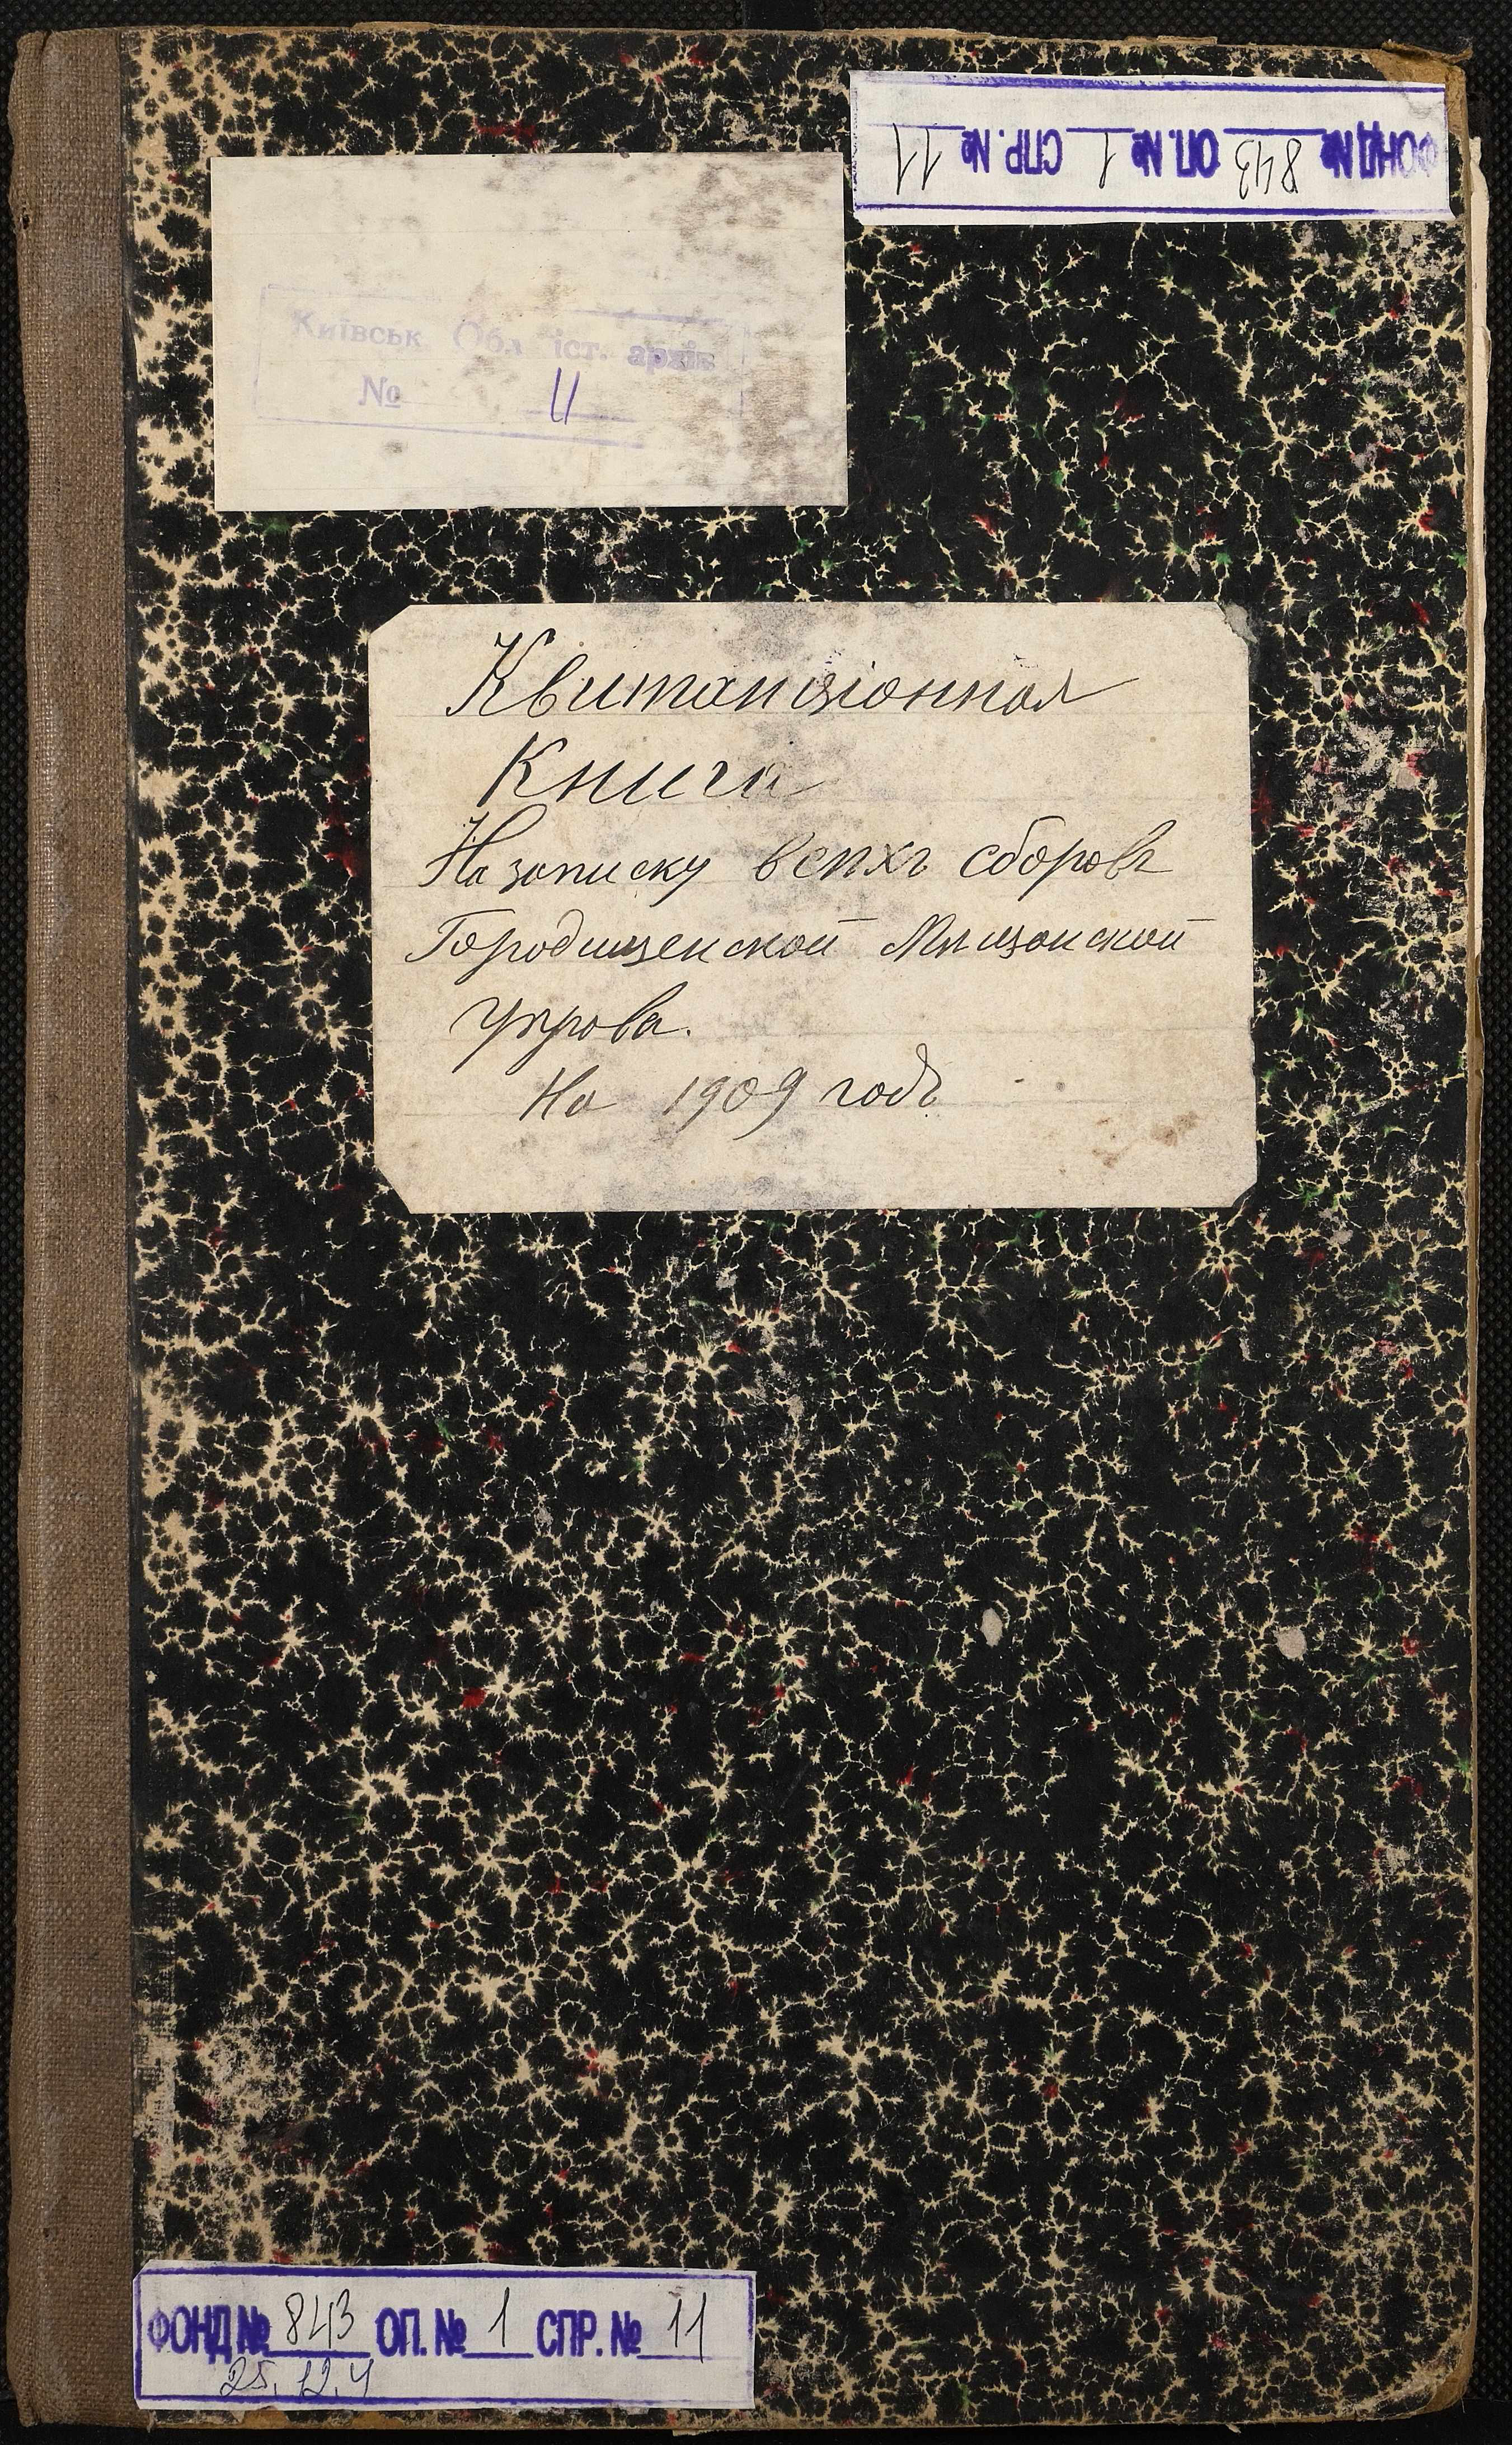 ФОНД № 843 ОП. № 1 СПР. № 11
Київськ Обл іст. архів
№ 11
Квитанціонная
Книга
На записку всѣхъ сборовъ
Городищенской Мѣщанской
Управа.
На 1909 годъ
ФОНД № 843 ОП. № 1 СПР. № 11
25.12.4